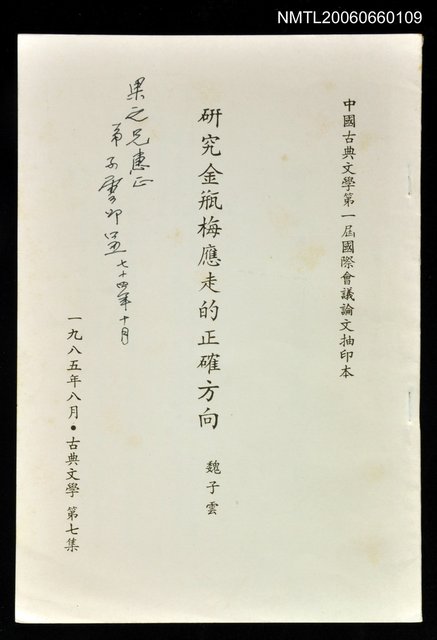 NMTL20060660109
中國古典文學第一屆國際會議論文抽印本
研究金瓶梅應走的正確方向
魏子雲
果之兄惠正
弟子雲印呈七十四年十月
一九八五年八月•古典文學 第七集